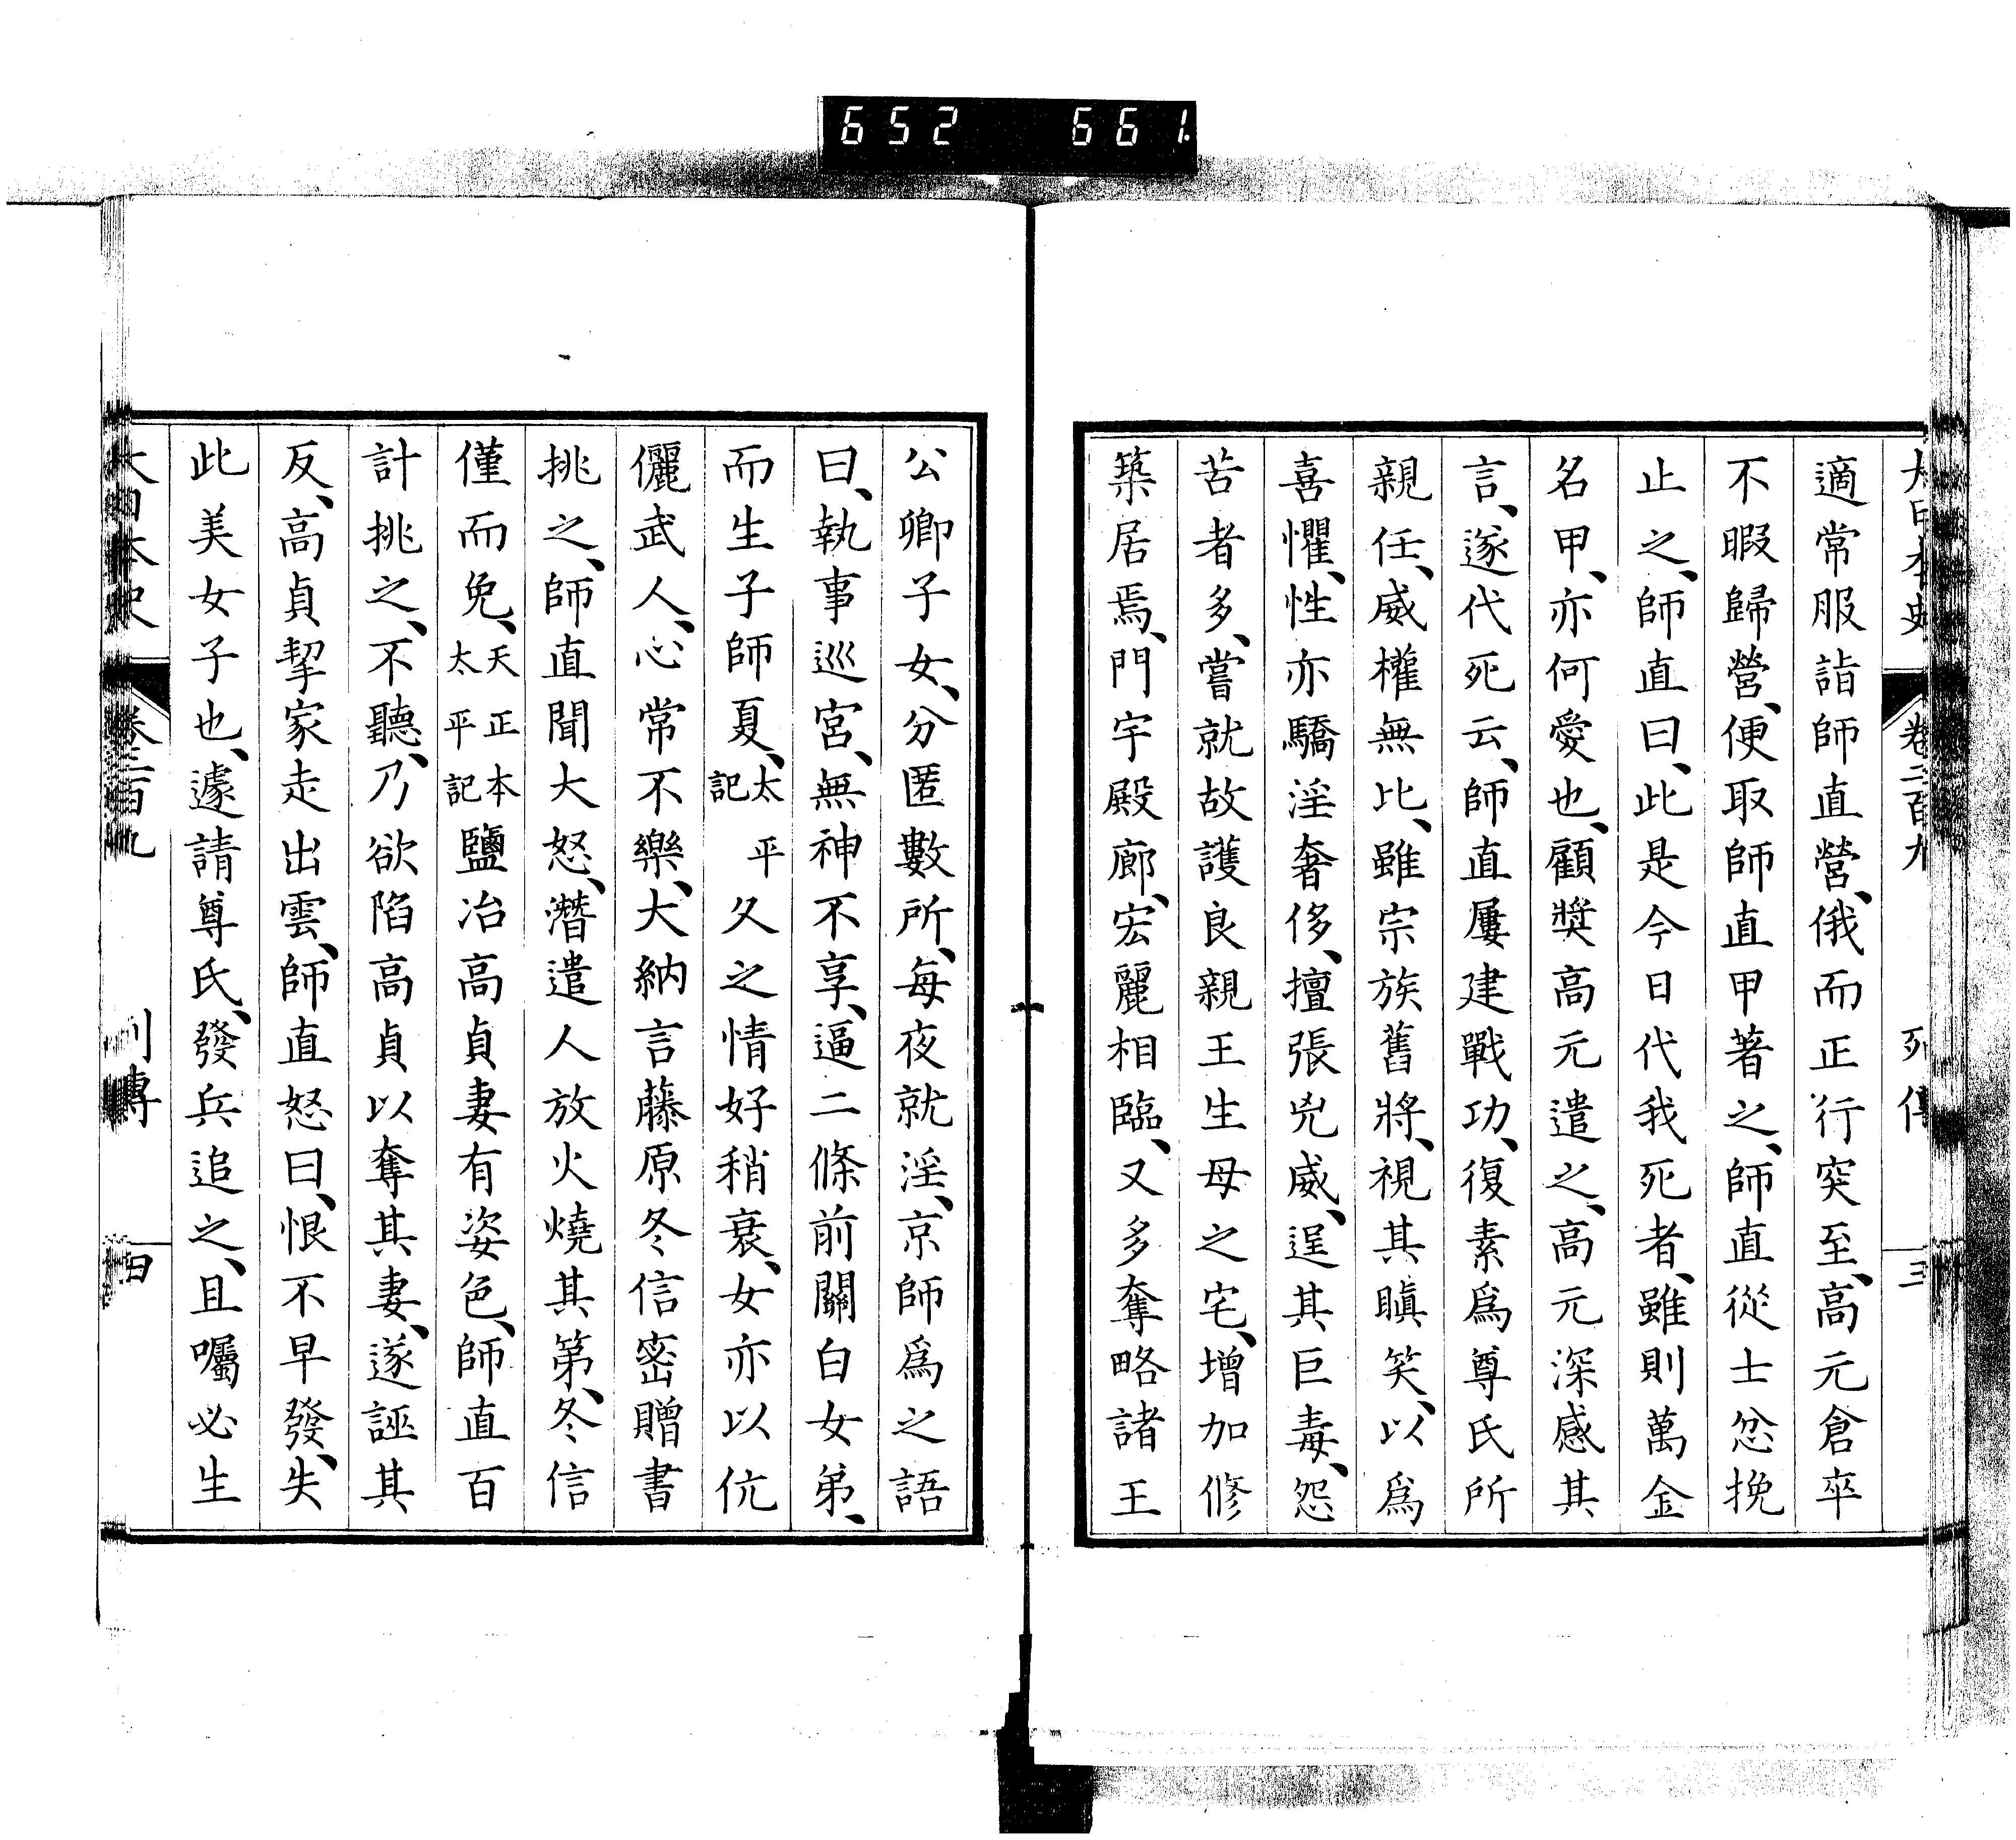 652 661
大日本史 卷二百九 列傳 三
適常服詣師直營、俄而正行突至、高元倉卒
不暇歸營、便取師直甲著之、師直從士忿挽
止之、師直曰、此是今日代我死者、雖則萬金
名甲、亦何愛也、顧獎高元遣之、高元深感其
言、遂代死云、師直屢建戰功、復素爲尊氏所
親任、威權無比、雖宗族舊將、視其瞋笑、以爲
喜懼、性亦驕淫奢侈、擅張兇威、逞其巨毒、怨
苦者多、嘗就故護良親王生母之宅、增加修
築居焉、門宇殿廊、宏麗相臨、又多奪略諸王
公卿子女、分匿數所、每夜就淫、京師爲之語
曰、執事巡宮、無神不享、逼二條前關白女弟、
而生子師夏、太平記久之情好稍衰、女亦以伉
儷武人、心常不樂、大納言藤原冬信密贈書
挑之、師直聞大怒、潛遣人放火燒其第、冬信
僅而免、天正本太平記鹽冶高貞妻有姿色、師直百
計挑之、不聽、乃欲陷高貞以奪其妻、遂誣其
反、高貞挈家走出雲、師直怒曰、恨不早發、失
此美女子也、遽請尊氏、發兵追之、且囑必生
大日本史 卷二百九 列傳 四